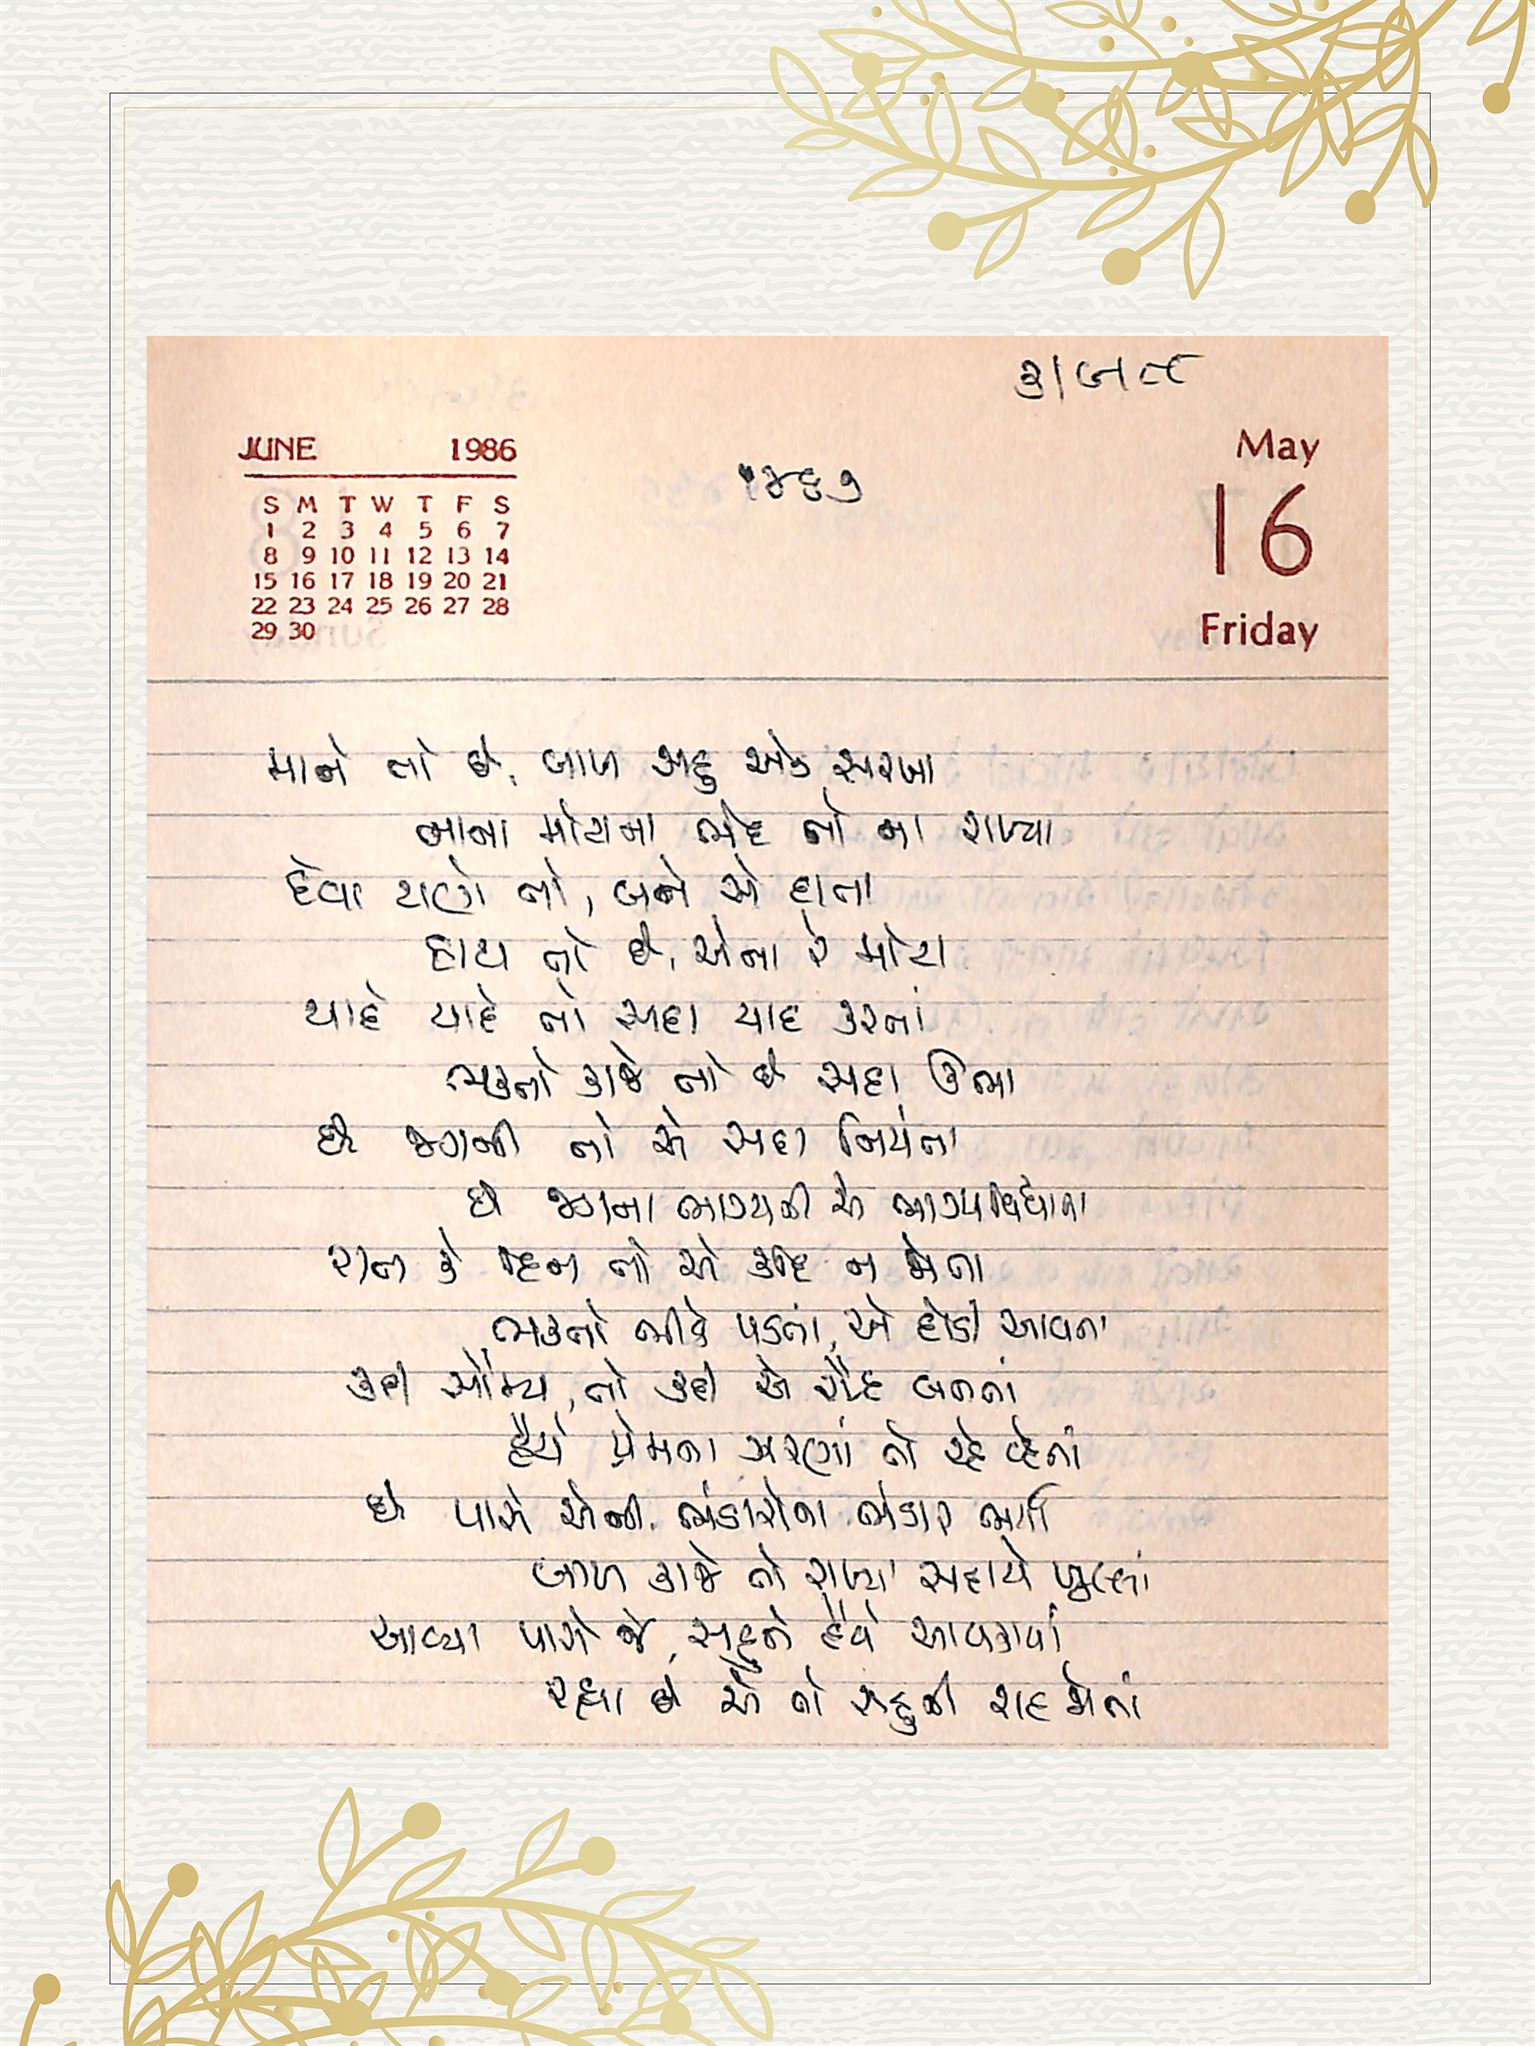 શાશ્વત
JUNE 1986
S M T W T F S
1 2 3 4 5 6 7
8 9 10 11 12 13 14
15 16 17 18 19 20 21
22 23 24 25 26 27 28
29 30
૧૪૬૭
May
16
Friday
માને તો છે, બાળ સહુ એક સરખા
નાના મોટાના ભેદ તો ના રાખ્યા
દેવા ટાણે તો, બને એ દાતા
હાથ તો છે, એના રે મોટા
યાદે યાદે તો સદા યાદ કરતાં
ભક્તો કાજે તો છે સદા ઊભા
છે જગની તો એ સદા નિયંતા
છે જગના ભાગ્યની એ ભાગ્યવિધાતા
રાત કે દિન તો એ કદિ ન જોતા
ભક્તો ભીડે પડતાં, એ દોડી આવતા
કદી સૌમ્ય, તો કદી એ રૌદ્ર બનતાં
હૈયે પ્રેમના ઝરણાં તો રહે વ્હેતાં
છે પાસે એની ભંડારોના ભંડાર ભર્યા
બાળ કાજે તો રાખ્યા સદાયે ખુલ્લાં
આવ્યા પાસે જે, સહુને હૈયે આવકાર્યા
રહ્યા છે એ તો સહુની રાહ જોતાં